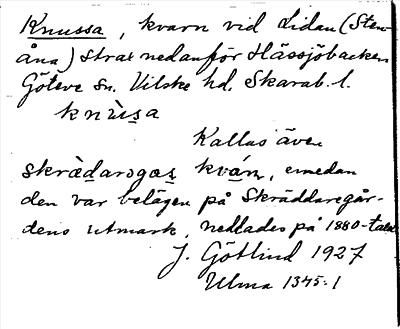 Knussa, kvarn vid Lidan (Sten-
åna) strax nedanför Hässjöbacken
Göteve sn. Vilske hd. Skarab. l.
knùsa
Kallas även
skrädaregas kván, emedan
den var belägen på Skräddaregår-
dens utmark, nedlades på 1880-talet
J. Götlind 1927
Ulma 1345:1